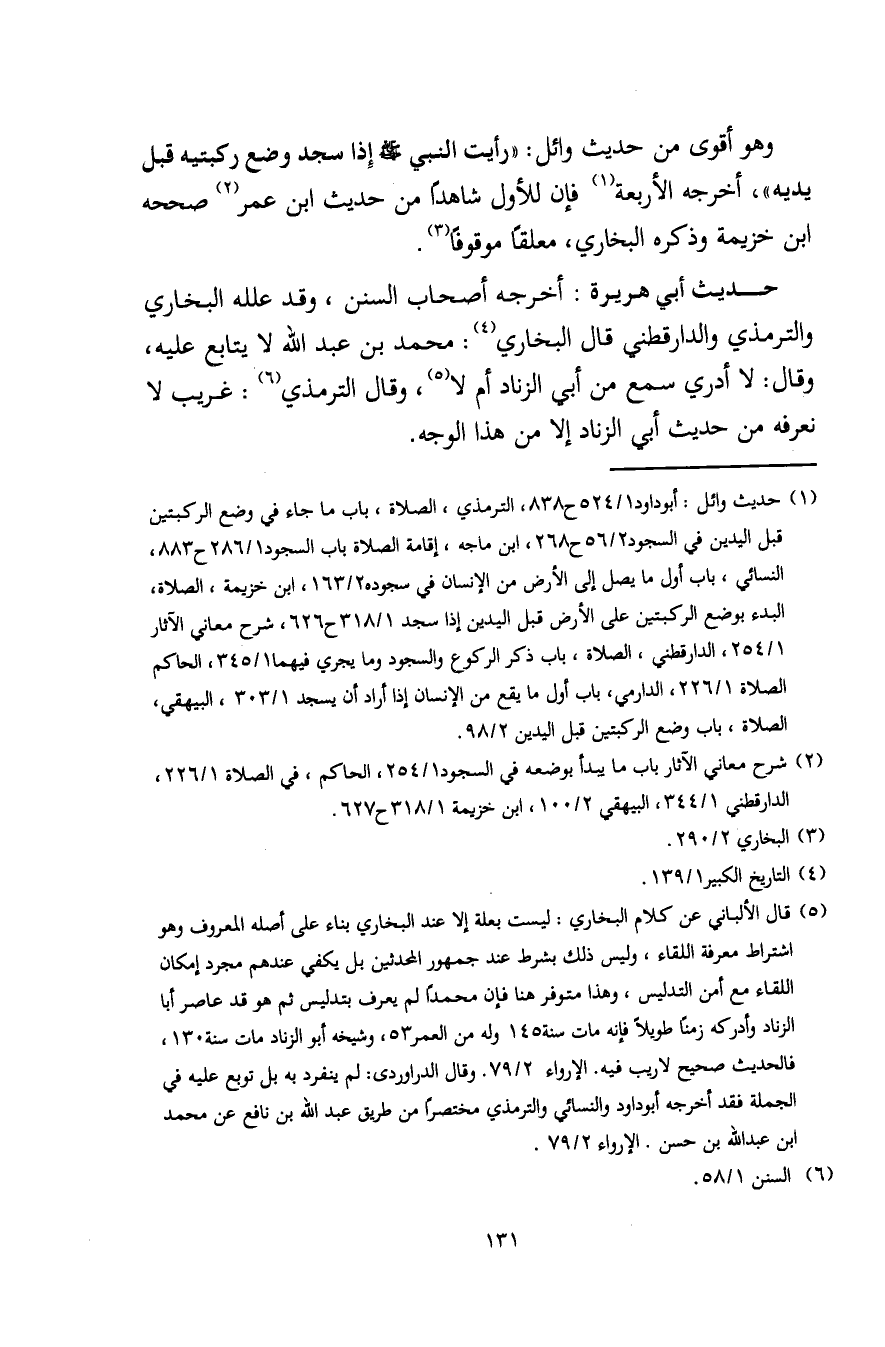 وهو أقوى من حديث وائل: «رأيت النبي ﷺ إذا سجد وضع ركبتيه قبل
يديه»، أخرجه الأربعة(١) فإن للأول شاهداً من حديث ابن عمر(٢) صححه
ابن خزيمة وذكره البخاري، معلقاً موقوفاً(٣).
حــديث أبي هريرة : أخرجه أصحاب السنن ، وقد علله البخاري
والترمذي والدارقطني قال البخاري(٤): محمد بن عبد الله لا يتابع عليه،
وقال: لا أدري سمع من أبي الزناد أم لا(٥)، وقال الترمذي(٦) : غريب لا
نعرفه من حديث أبي الزناد إلا من هذا الوجه.
(١) حديث وائل : أبوداود٥٢٤/١ح٨٣٨، الترمذي ، الصلاة ، باب ما جاء في وضع الركبتين
قبل اليدين في السجود٥٦/٢ح٢٦٨، ابن ماجه ، إقامة الصلاة باب السجود٢٨٦/١ح٨٨٣،
النسائي ، باب أول ما يصل إلى الأرض من الإنسان في سجوده١٦٣/٢، ابن خزيمة ، الصلاة،
البدء بوضع الركبتين على الأرض قبل اليدين إذا سجد ٣١٨/١ح٦٢٦، شرح معاني الآثار
٢٥٤/١، الدارقطني ، الصلاة ، باب ذكر الركوع والسجود وما يجري فيهما٣٤٥/١، الحاكم
الصلاة ٢٢٦/١، الدارمي، باب أول ما يقع من الإنسان إذا أراد أن يسجد ٣٠٣/١ ، البيهقي،
الصلاة ، باب وضع الركبتين قبل اليدين ٩٨/٢.
(٢) شرح معاني الآثار باب ما يبدأ بوضعه في السجود٢٥٤/١، الحاكم ، في الصلاة ٢٢٦/١،
الدارقطني ٣٤٤/١، البيهقي ١٠٠/٢، ابن خزيمة ٣١٨/١ح٦٢٧.
(٣) البخاري ٢٩٠/٢.
(٤) التاريخ الكبير١٣٩/١.
(٥) قال الألباني عن كلام البخاري : ليست بعلة إلا عند البخاري بناء على أصله المعروف وهو
اشتراط معرفة اللقاء ، وليس ذلك بشرط عند جمهور المحدثين بل يكفي عندهم مجرد إمكان
اللقاء مع أمن التدليس ، وهذا متوفر هنا فإن محمداً لم يعرف بتدليس ثم هو قد عاصر أبا
الزناد وأدركه زمناً طويلاً فإنه مات سنة١٤٥ وله من العمر٥٣، وشيخه أبو الزناد مات سنة١٣٠،
فالحديث صحيح لاريب فيه. الإرواء ٧٩/٢. وقال الدراوردي: لم ينفرد به بل توبع عليه في
الجملة فقد أخرجه أبوداود والنسائي والترمذي مختصراً من طريق عبد الله بن نافع عن محمد
ابن عبدالله بن حسن . الإرواء ٧٩/٢ .
(٦) السنن ٥٨/١.
١٣١